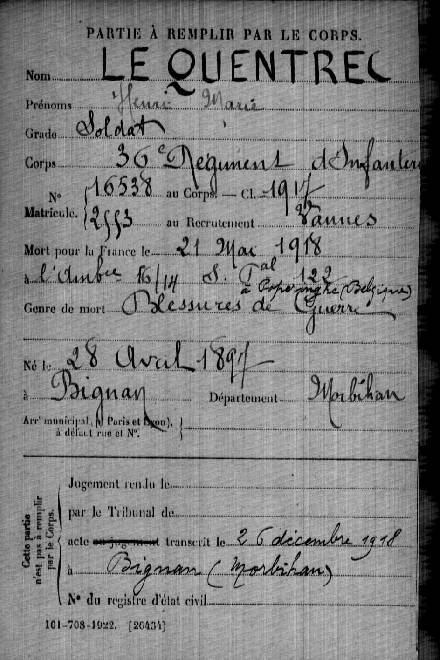 PARTIE À REMPLIR PAR LE CORPS.
Nom LE QUENTREC
Prénoms Henri Marie
Grade Soldat
Corps 36e Régiment d'Infanterie
N° 16538 au Corps. — Cl. 1917
Matricule. 2553 au Recrutement Vannes
Mort pour la France le 21 Mai 1918
à l'Ambce 16/14 S. Pal 122
à Poperinghe (Belgique)
Genre de mort Blessures de Guerre
Né le 28 Avril 1897
à Bignan Département Morbihan
Arrt municipal (p Paris et Lyon),
à défaut rue et N°.
Cette partie
n'est pas à remplir
par le Corps.
Jugement rendu le
par le Tribunal de
acte ou jugement transcrit le 26 décembre 1918
à Bignan (Morbihan)
N° du registre d'état civil
101-708-1922. [26434]